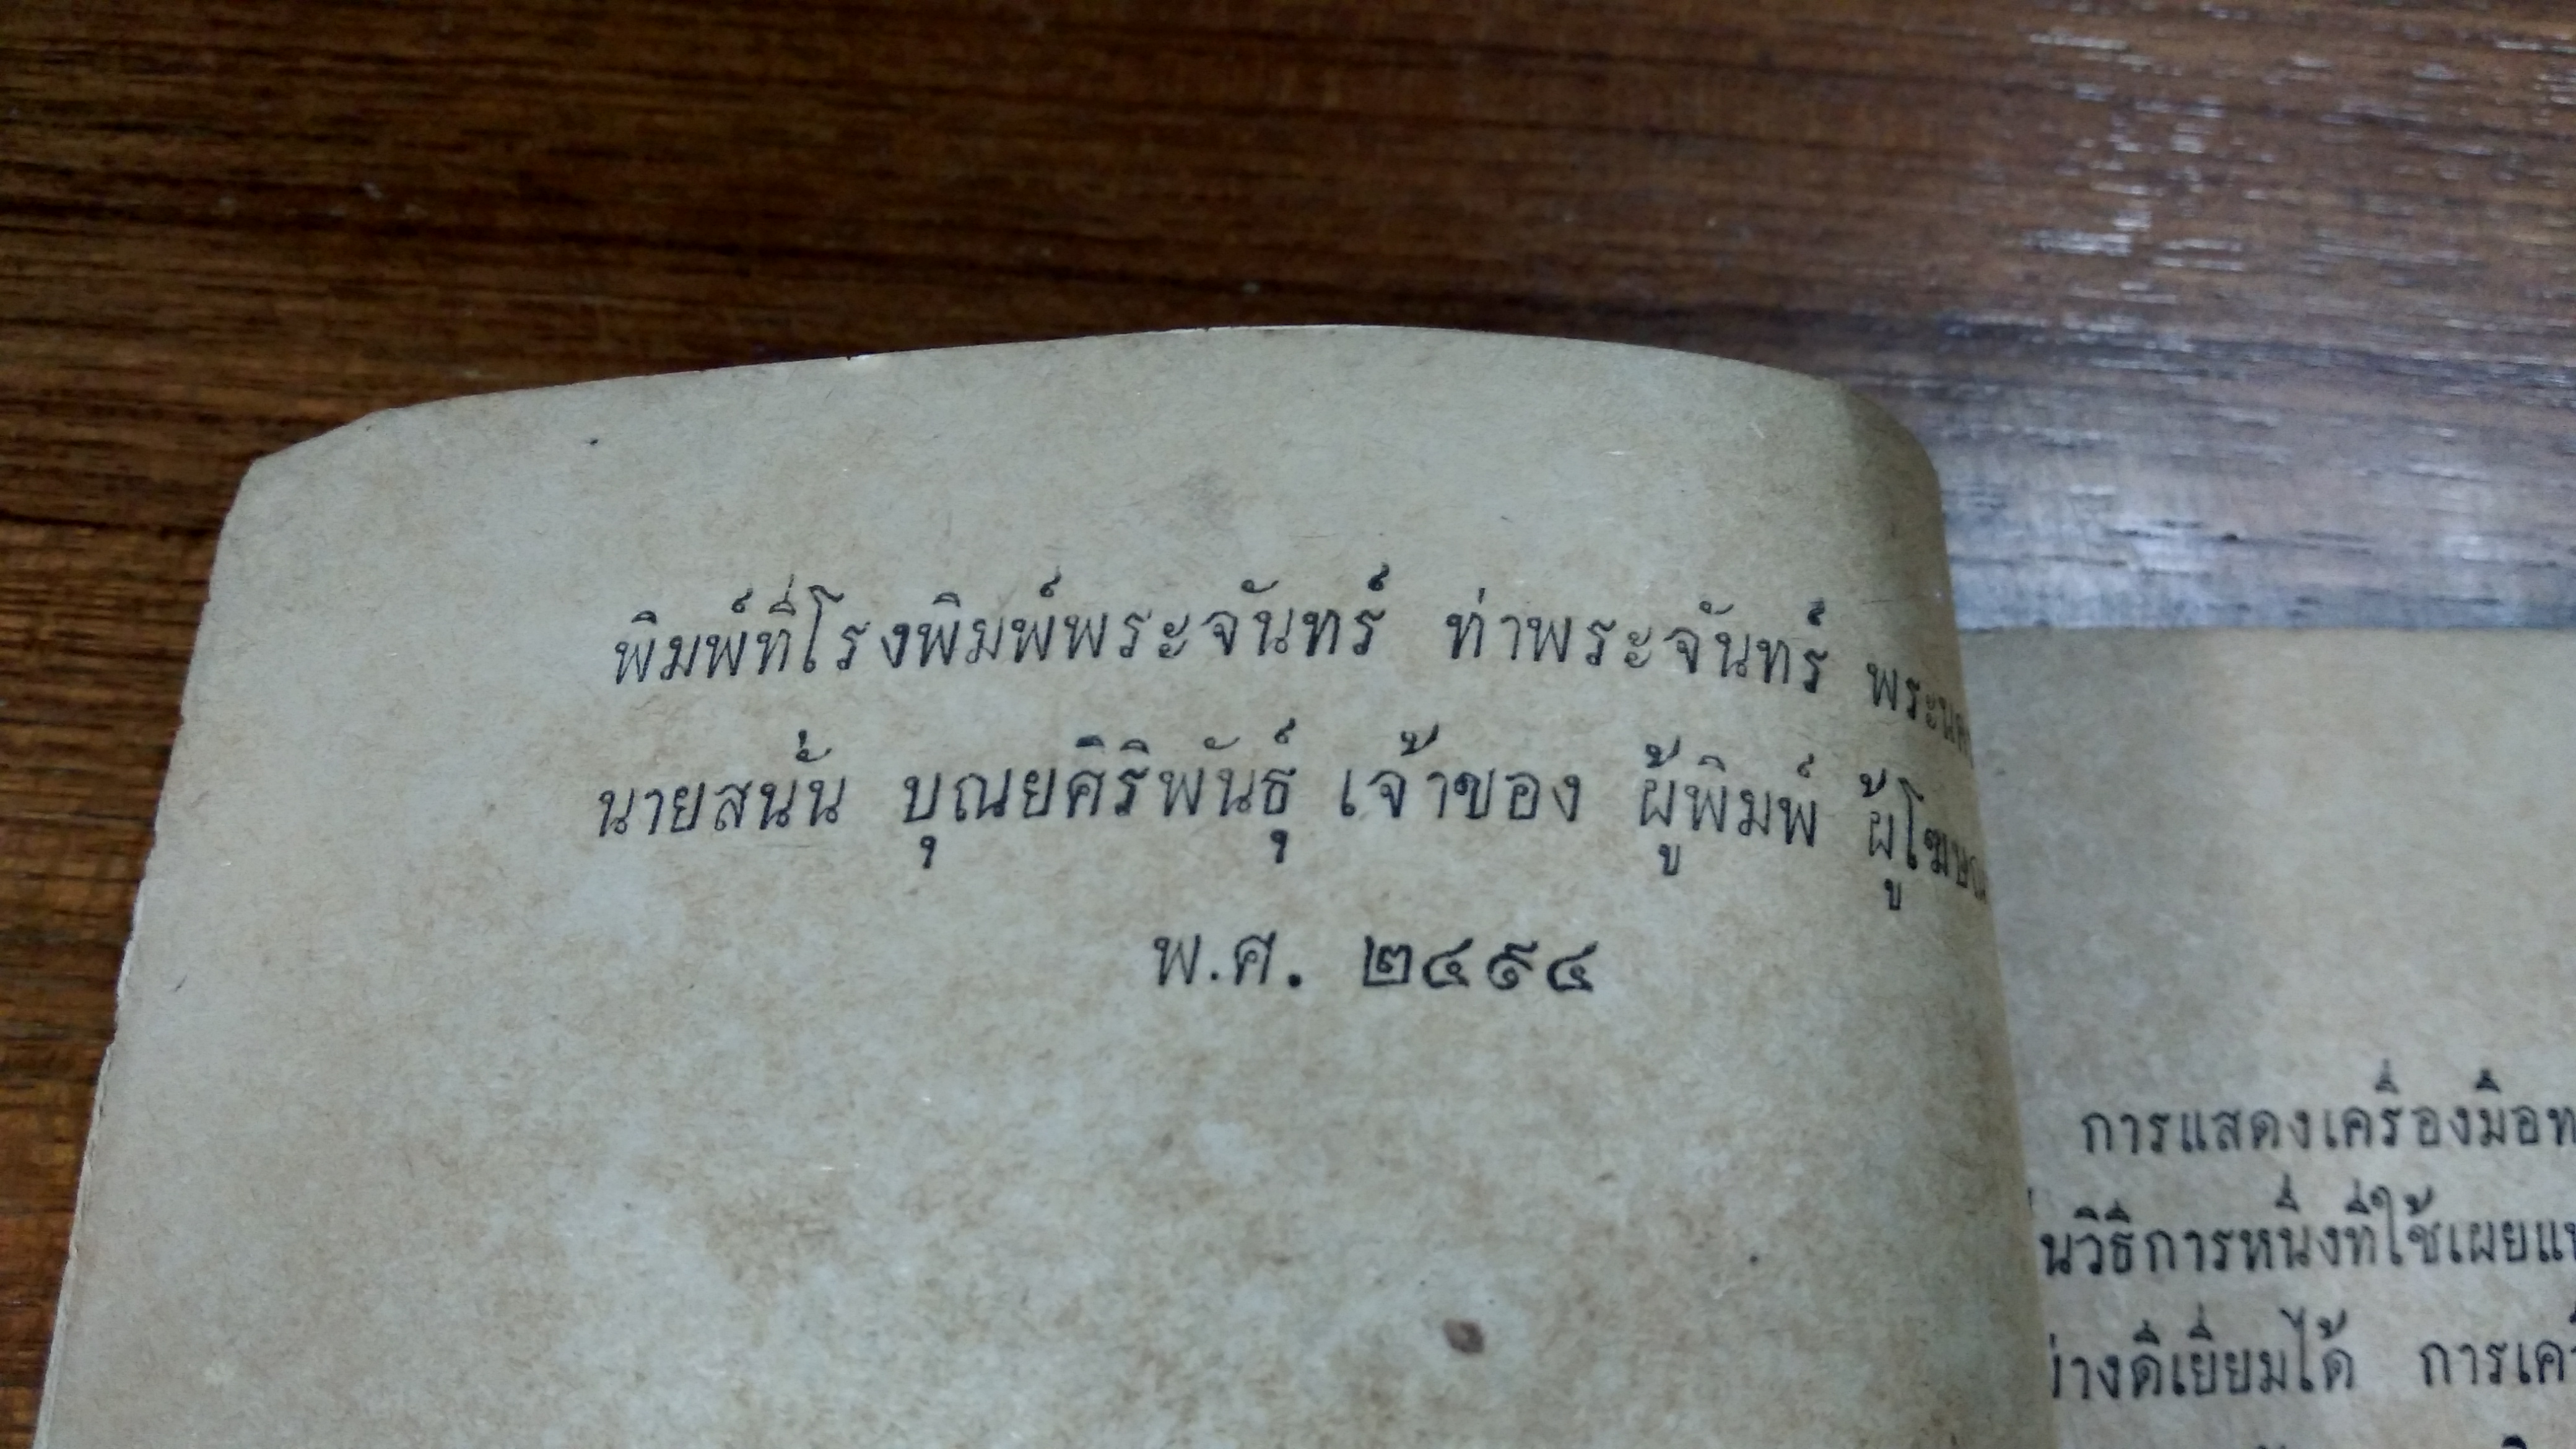 พิมพ์ที่โรงพิมพ์พระจันทร์ ท่าพระจันทร์
นายสนั่น บุณยศิริพันธุ์ เจ้าของ ผู้พิมพ์
พ.ศ. ๒๔๙๔
การแสดงเครื่องมือ
วิธีการหนึ่งที่ใช้
ดีเยี่ยมได้